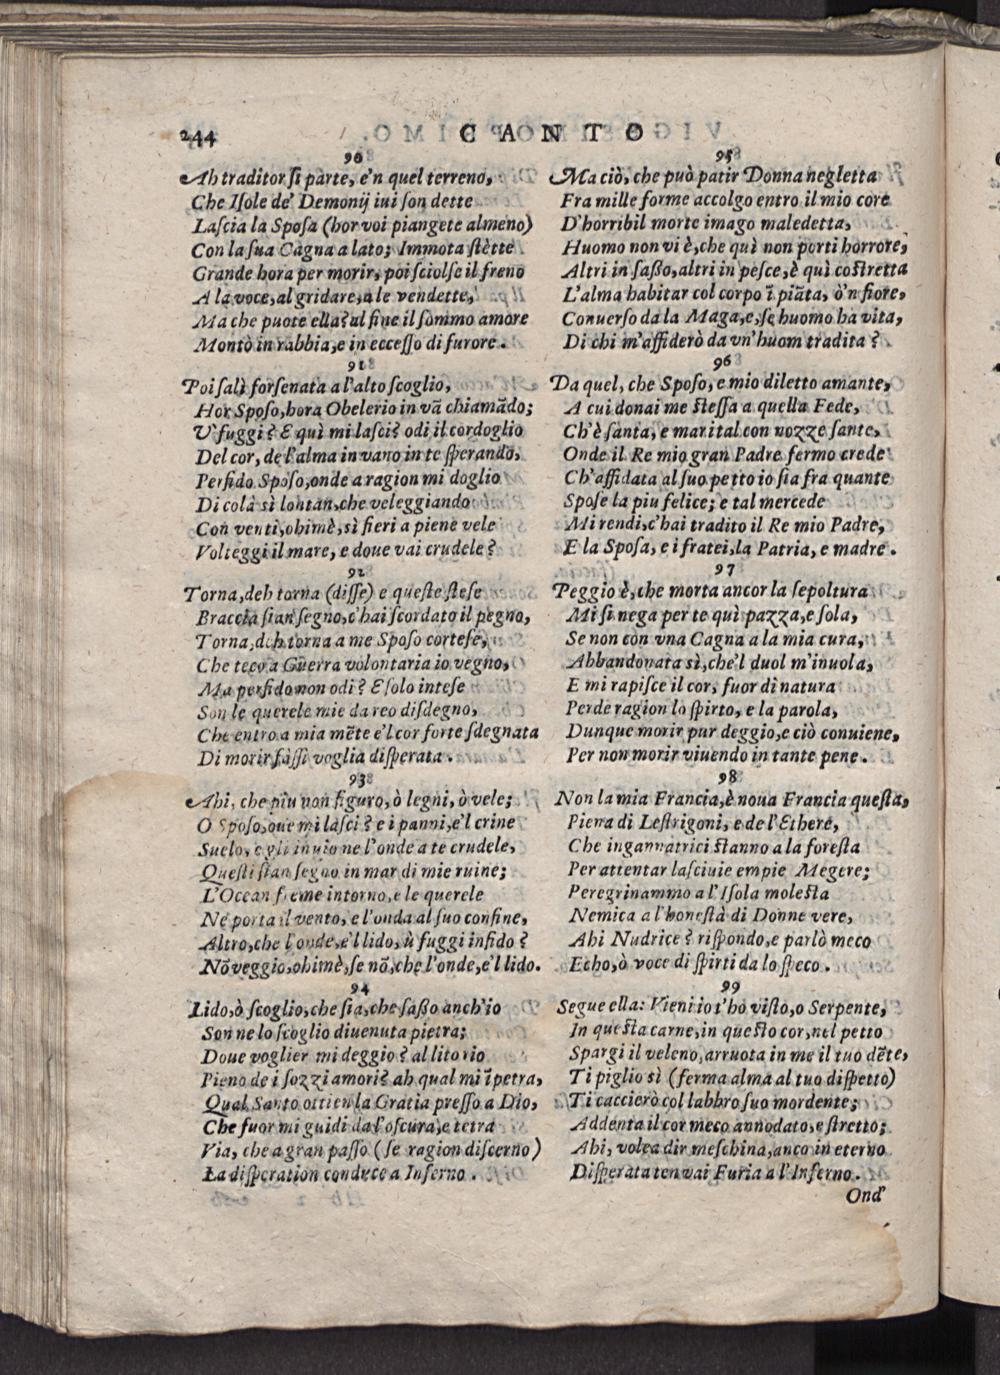 244
CANTO
90
Ah traditor si parte, e'n quel terreno,
Che Isole de' Demonij iui son dette
Lascia la Sposa (hor voi piangete almeno)
Con la sua Cagna a lato; Immota stètte
Grande hora per morir, poi sciolse il freno
A la voce, al gridare, a le vendette,
Ma che puote ella? al fine il sommo amore
Montò in rabbia, e in eccesso di furore.
91
Poi salì forsenata a l'alto scoglio,
Hor Sposo, hora Obelerio in vã chiamãdo;
V' fuggi? E quì mi lasci? odi il cordoglio
Del cor, de l'alma in vano in te sperando,
Perfido Sposo, onde a ragion mi doglio
Di colà sì lontan, che veleggiando
Con venti, ohimè, sì fieri a piene vele
Volteggi il mare, e doue vai crudele?
92
Torna, deh torna (disse) e queste stese
Braccia sian segno, c'hai scordato il pegno,
Torna, deh torna a me Sposo cortese,
Che teco a Guerra volontaria io vegno,
Ma perfido non odi? E solo intese
Son le querele mie da reo disdegno,
Che entro a mia mẽte e'l cor forte sdegnata
Di morir fàssi voglia disperata.
93
Ahi, che piu non figuro, ò legni, ò vele;
O Sposo, oue mi lasci? e i panni, e'l crine
Suelo, e gli inuio ne l'onde a te crudele,
Questi sian segno in mar di mie ruine;
L'Ocean freme intorno, e le querele
Nè porta il vento, e l'onda al suo confine,
Altro, che l'onde, e'l lido, ù fuggi infido?
Nõ veggio, ohimè, se nõ, che l'onde, e'l lido.
94
Lido, ò scoglio, che sia, che sasso anch'io
Son ne lo scoglio diuenuta pietra;
Doue voglier mi deggio? al litorio
Pieno de i sozzi amori? ah qual mi ĩpetra,
Qual Santo ottien la Gratia presso a Dio,
Che fuor mi guidi da l'oscura, e tetra
Via, che a gran passo (se ragion discerno)
La disperation conduce a Inferno.
95
Ma ciò, che può patir Donna negletta
Fra mille forme accolgo entro il mio core
D'horribil morte imago maledetta,
Huomo non vi è, che quì non porti horrore,
Altri in sasso, altri in pesce, è quì costretta
L'alma habitar col corpo ĩ piãta, ò'n fiore,
Conuerso da la Maga, e, se huomo ha vita,
Di chi m'affiderò da vn'huom tradita?
96
Da quel, che Sposo, e mio diletto amante,
A cui donai me stessa a quella Fede,
Ch'è santa, e marital con nozze sante,
Onde il Re mio gran Padre fermo crede
Ch'affidata al suo petto io sia fra quante
Spose la piu felice; e tal mercede
Mi rendi, c'hai tradito il Re mio Padre,
E la Sposa, e i fratei, la Patria, e madre.
97
Peggio è, che morta ancor la sepoltura
Mi si nega per te quì pazza, e sola,
Se non con vna Cagna a la mia cura,
Abbandonata sì, che'l duol m'inuola,
E mi rapisce il cor, fuor di natura
Perde ragion lo spirto, e la parola,
Dunque morir pur deggio, e ciò conuiene,
Per non morir viuendo in tante pene.
98
Non la mia Francia, è noua Francia questa,
Piena di Lestrigoni, e de l'Ethere,
Che ingannatrici stanno a la foresta
Per attentar lasciuie empie Megere;
Peregrinammo a l'Isola molesta
Nemica a l'honestà di Donne vere,
Ahi Nudrice? rispondo, e parlò meco
Echo, ò voce di spirti da lo speco.
99
Segue ella: Vieni io t'hò visto, o Serpente,
In questa carne, in questo cor, nel petto
Spargi il veleno, arruota in me il tuo dẽte,
Ti piglio sì (ferma alma al tuo dispetto)
Ti caccierò col labbro suo mordente;
Addenta il cor meco annodato, e stretto;
Ahi, volea dir meschina, anco in eterno
Disperata ten vai Furia a l'Inferno.
Ond'